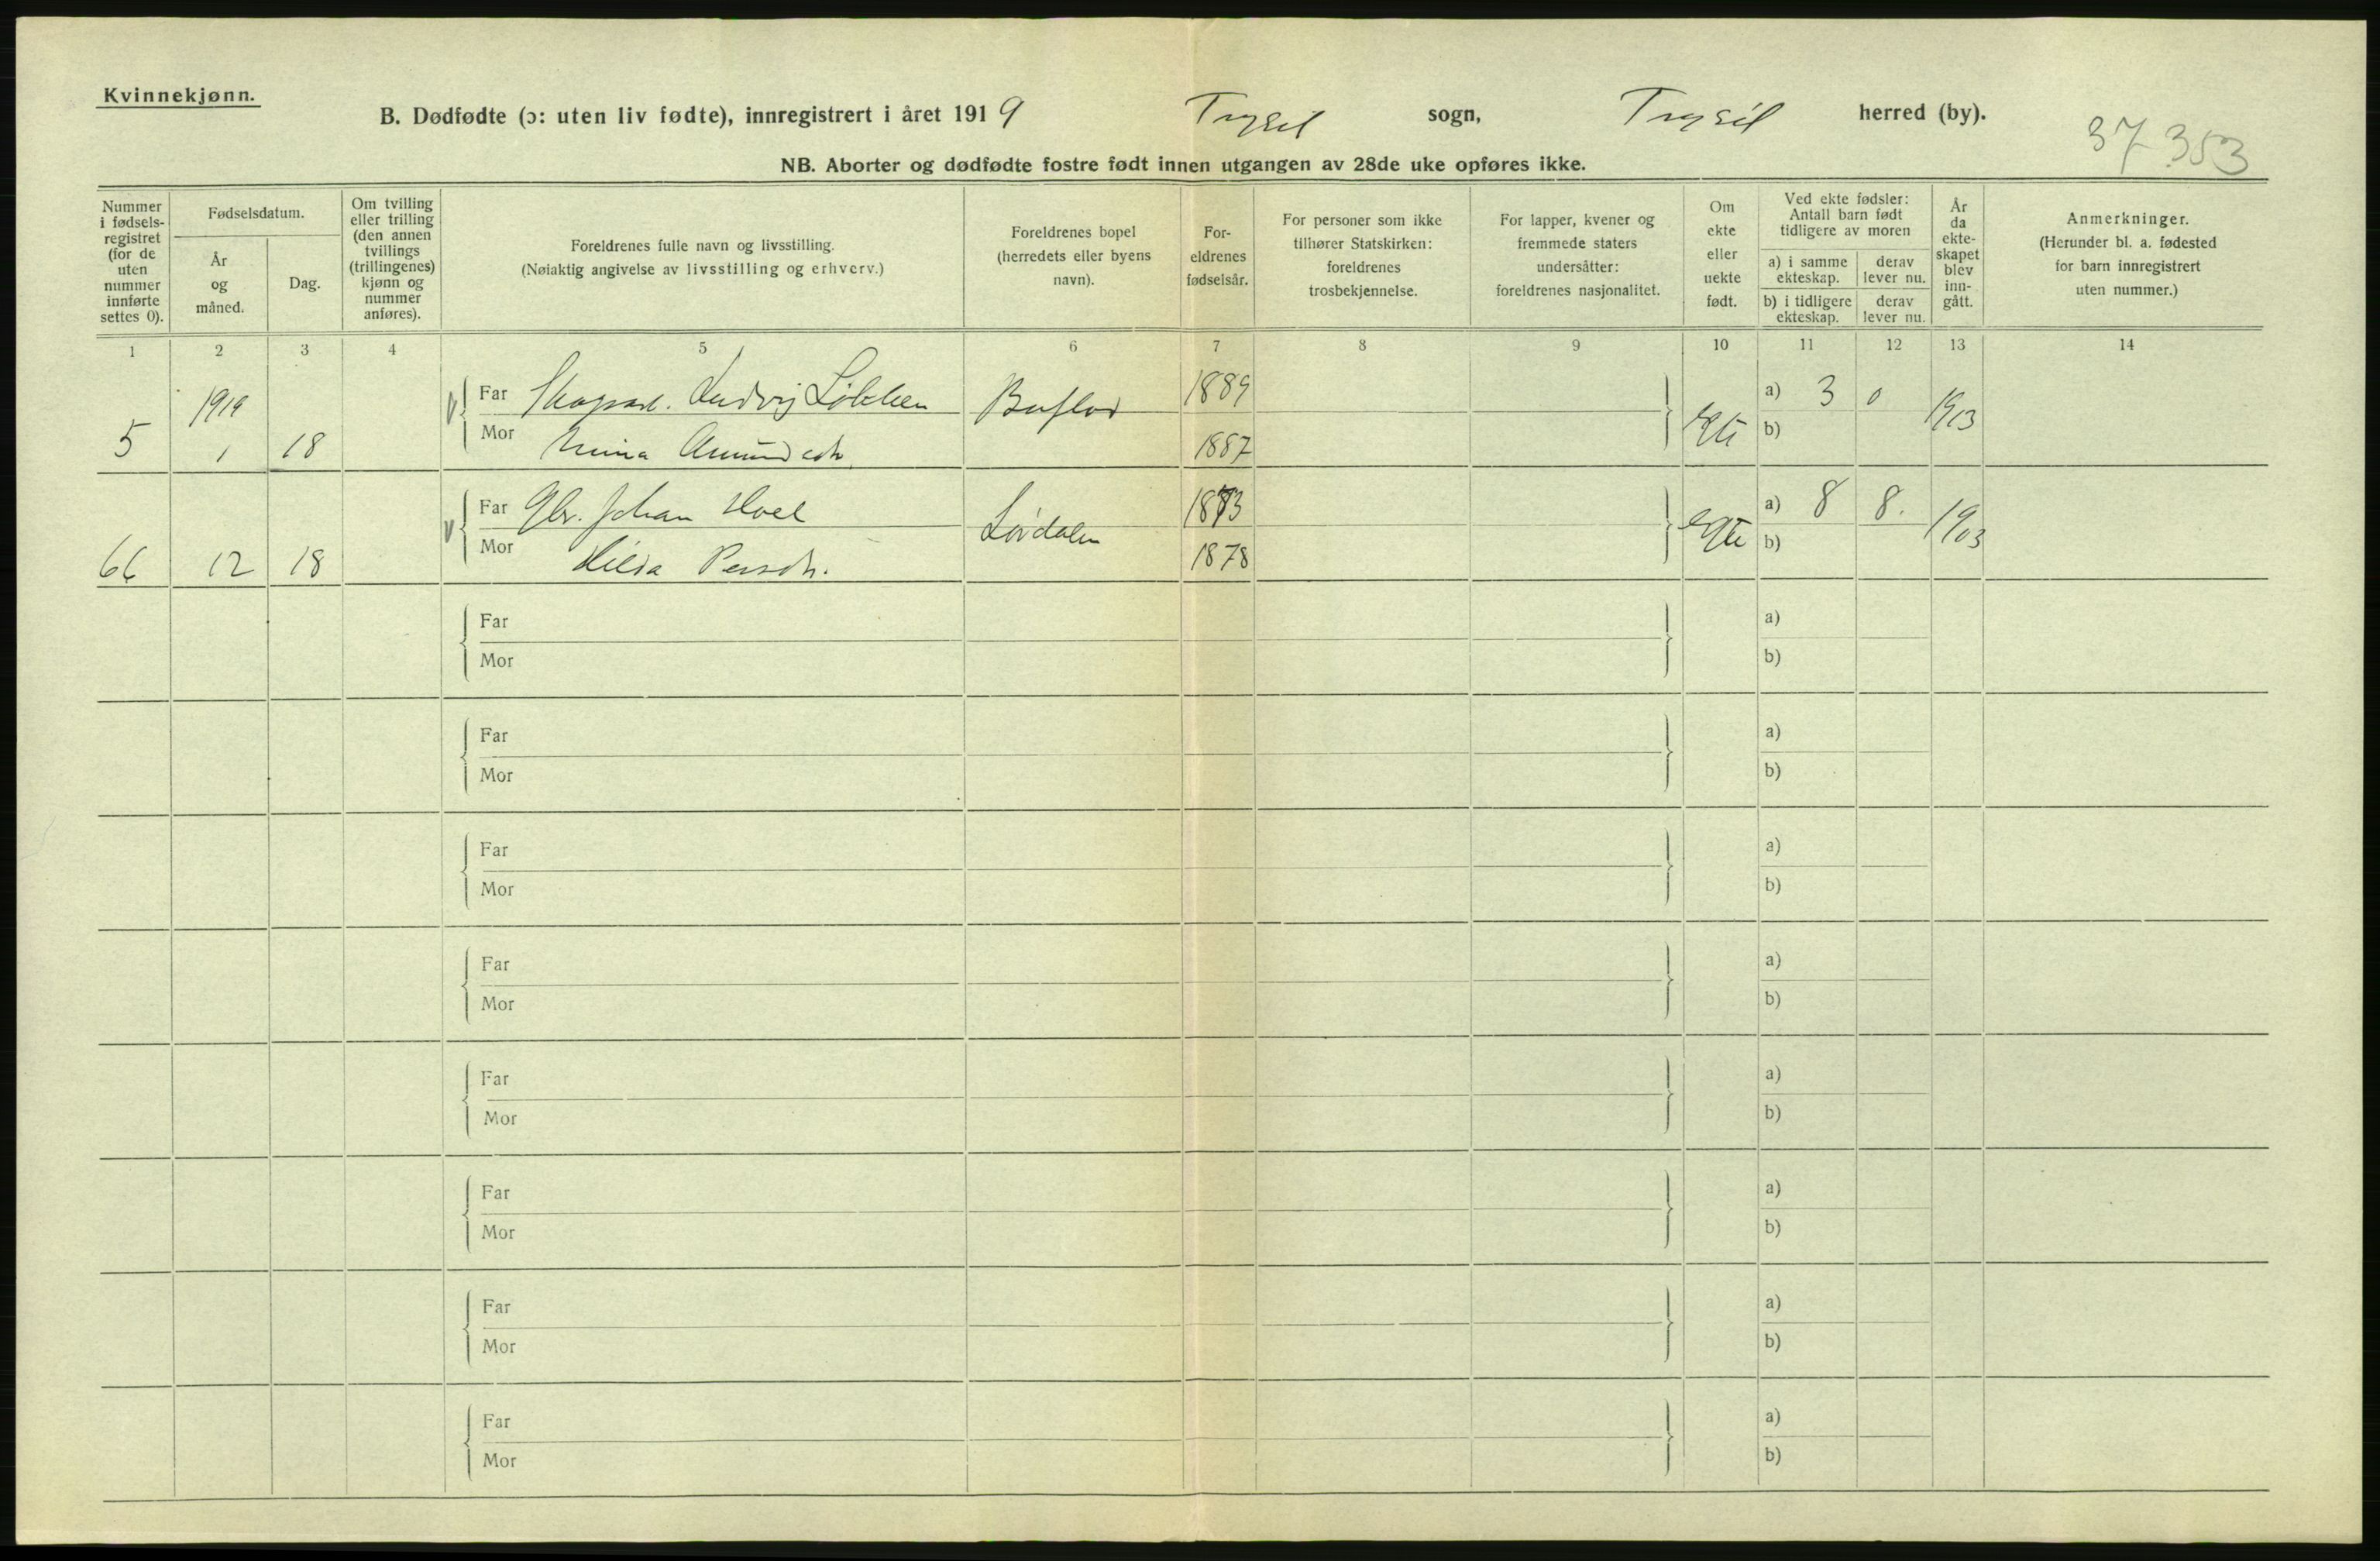 Kvinnekjønn.
B. Dødfødte (ɔ: uten liv fødte), innregistrert i året 1919 Trysil sogn, Trysil herred (by).
37 353
NB. Aborter og dødfødte fostre født innen utgangen av 28de uke opføres ikke.
Nummer i fødsels-registret (for de uten nummer innførte settes 0).
Fødselsdatum.
År og måned.
Dag.
Om tvilling eller trilling (den annen tvillings (trillingenes) kjønn og nummer anføres).
Foreldrenes fulle navn og livsstilling.
(Nøiaktig angivelse av livsstilling og erhverv.)
Foreldrenes bopel (herredets eller byens navn).
For-eldrenes fødselsår.
For personer som ikke tilhører Statskirken: foreldrenes trosbekjennelse.
For lapper, kvener og fremmede staters undersåtter: foreldrenes nasjonalitet.
Om ekte eller uekte født.
Ved ekte fødsler: Antall barn født tidligere av moren
a) i samme ekteskap.
derav lever nu.
b) i tidligere ekteskap.
derav lever nu.
År da ekte-skapet blev inn-gått.
Anmerkninger.
(Herunder bl. a. fødested for barn innregistrert uten nummer.)
1 2 3 4 5 6 7 8 9 10 11 12 13 14
1919 Far Ludvig Løkken 1889 a) 3 0 1913
5 1 18 Mor Amundsdtr. 1887 Egte b)
Far Gbr. Johan Hoel Lørdalen 1873 a) 8 8. 1903
66 12 18 Mor Hilda Persdtr. 1878 Egte b)
Far a)
Mor b)
Far a)
Mor b)
Far a)
Mor b)
Far a)
Mor b)
Far a)
Mor b)
Far a)
Mor b)
Far a)
Mor b)
Far a)
Mor b)